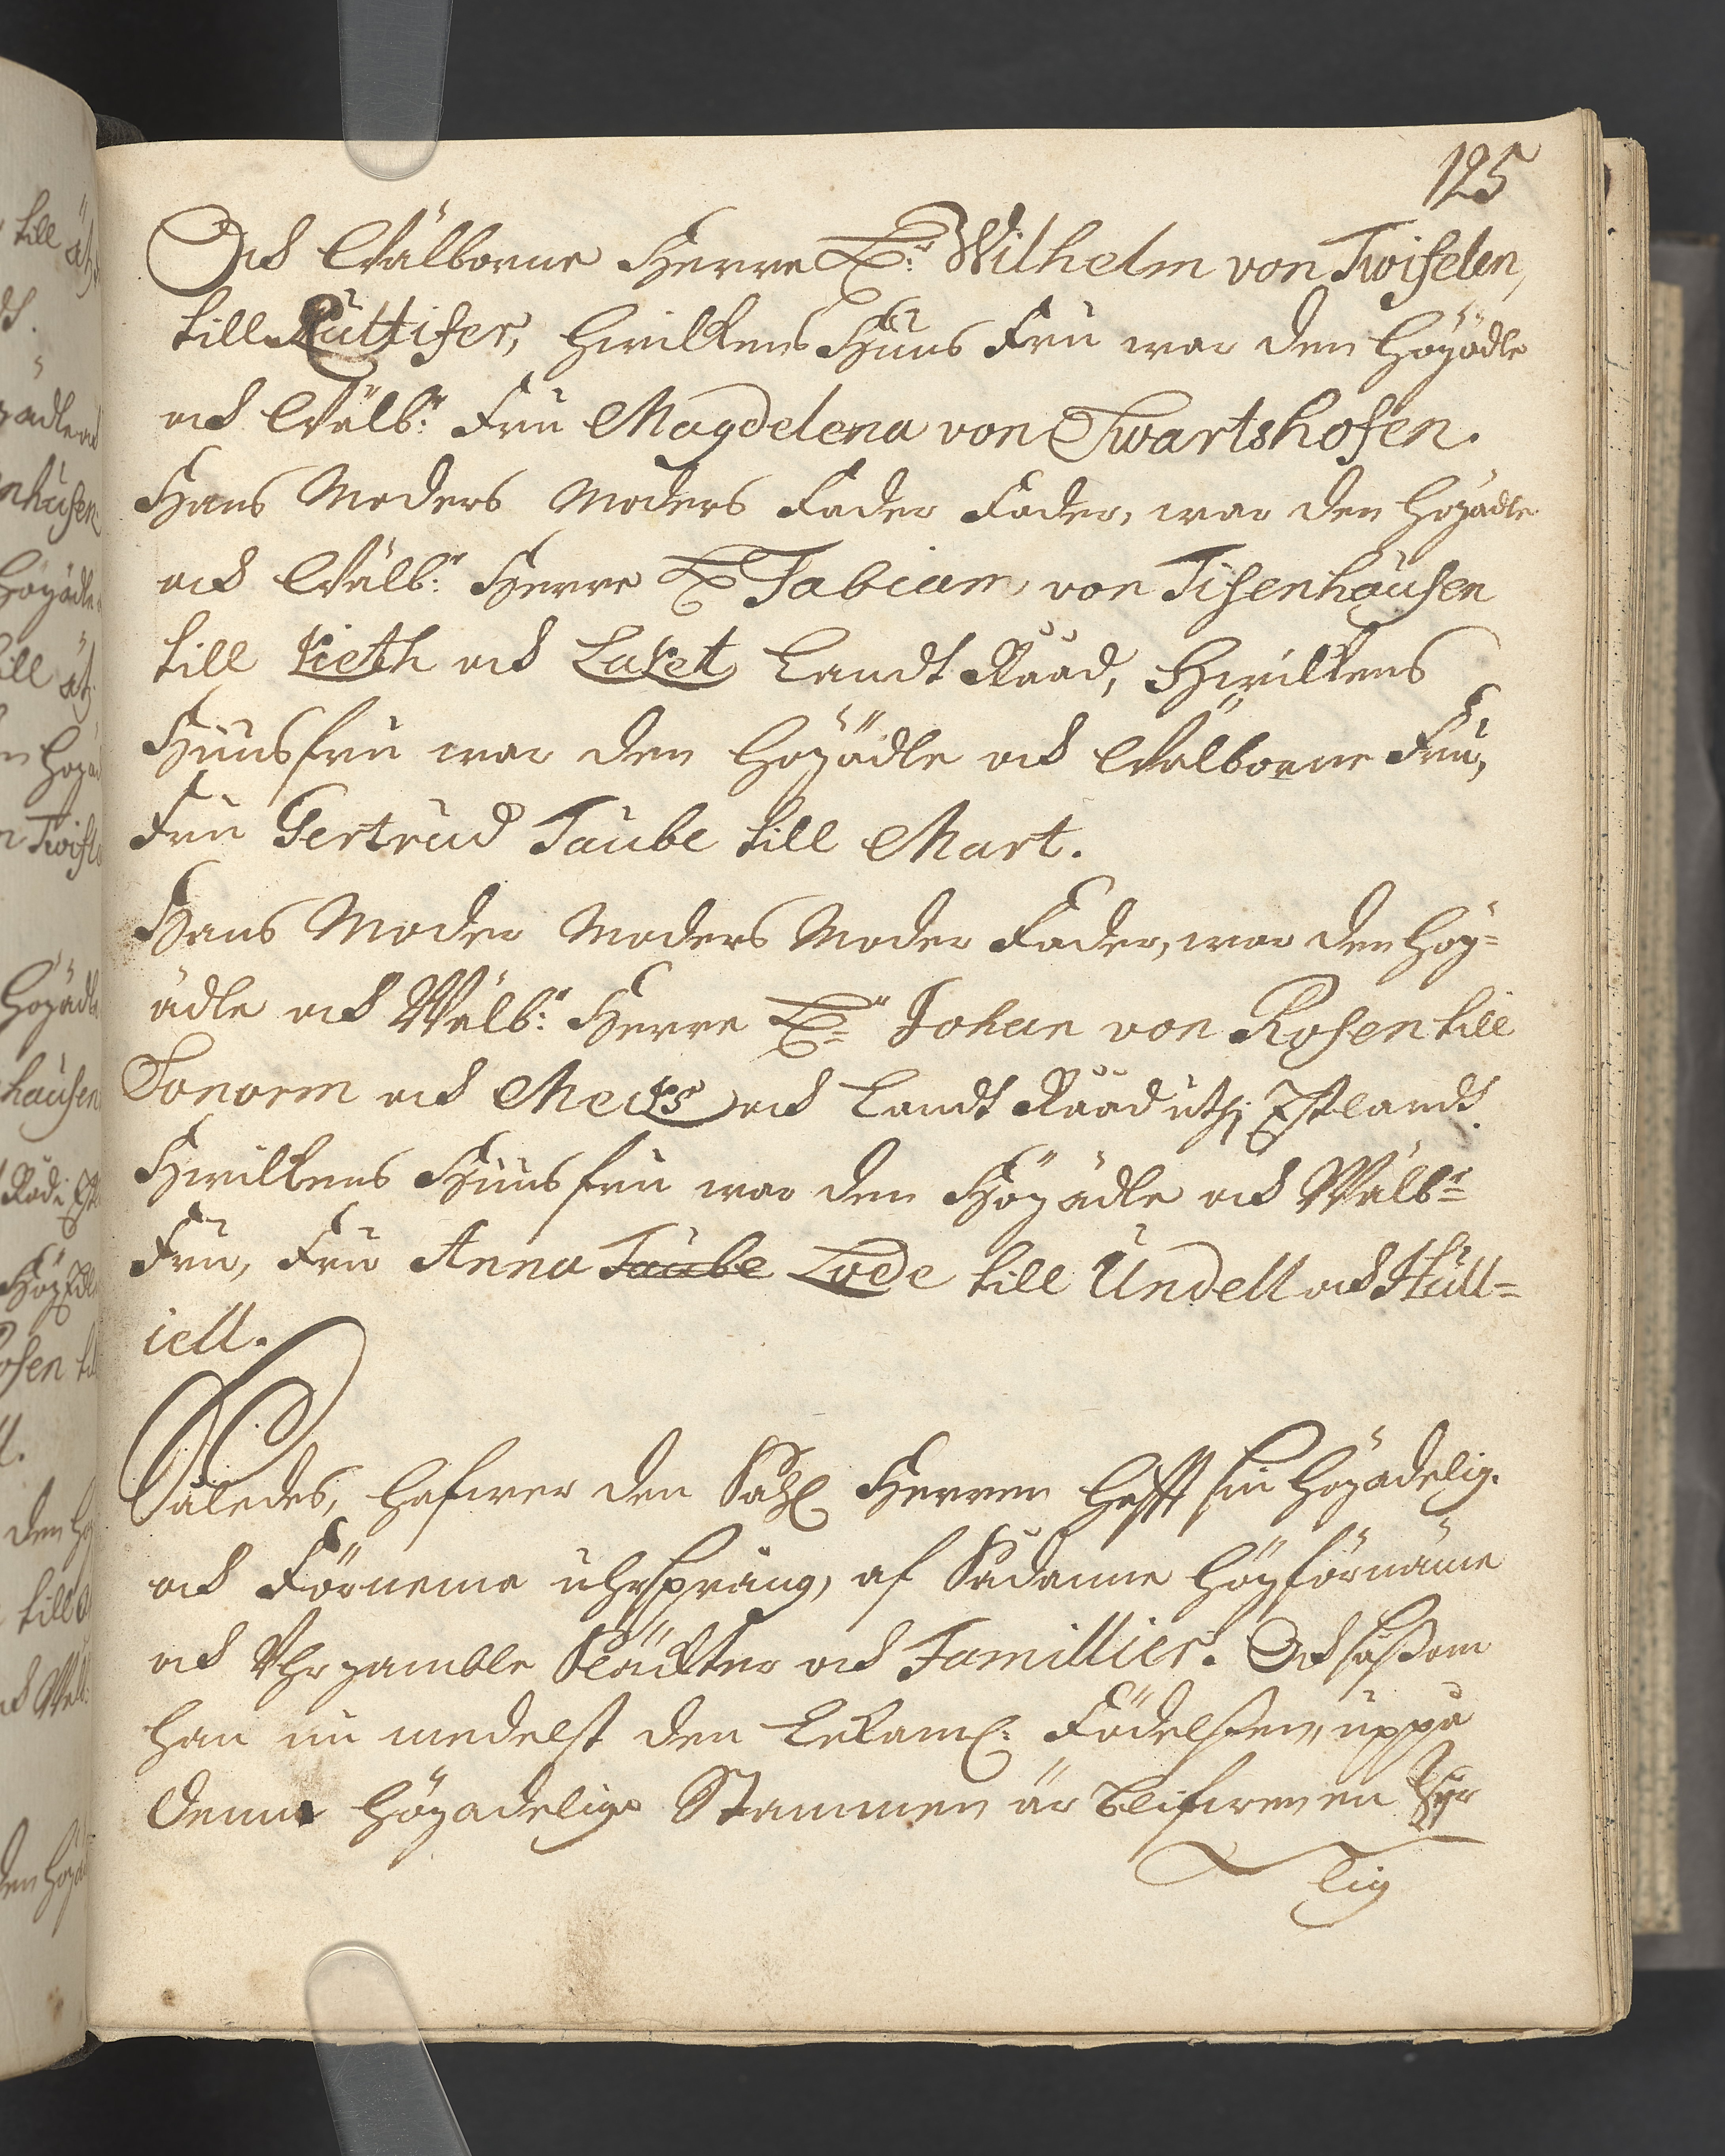 125
Och Wälborne Herre Hr: Wilhelm von Twifelen,
till Rüttifer, hwilkens Huus Fru war den Höyädle
och Wälb:ne Fru Magdelena von Swartshofen.
Hans Moders Moders Fader Fader, war den Höyädle
och Wälb:ne Herre Hr Fabian von Tisenhäusen
till Kieth och Laket Landt Rååd, Hwilkens
Huusfru war den Höyädle och Wälborne Fru,
Fru Gertrud Taube till Mart.
Hans Moder Moders Moder Fader, war den Höy=
ädle och Wälb:ne Herre Hr Johan von Rosen till
Sonorm och Mecks och Landt Rååd uthj Estlandt
Hwilkens Huusfru war den Höyädle och Wälbne
Fru, Fru Anna Taube Lode till Undell och Hüll=
iell.
Således, hafwer den Sahl Herren hafft sin Höyadelig.
och Förneme uhrsprung, af Sådanne Höyförnäme
och Uhrgamble Släckter och Famillier. Och såssom
han nu medelst den Lekaml: Födelssen, uppå
Denna Höyadelige Stammen är blifwen en Hyr
Lig